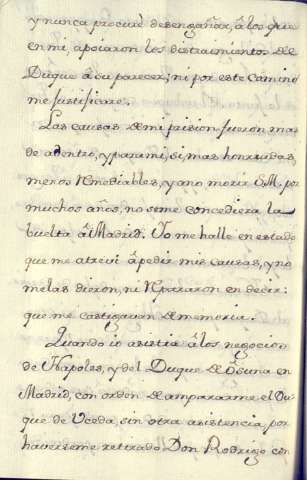 y nunca procurè desengañar, â los que
en mi, apoiaron los distraimientos del
Duque â su parecer, ni por este Camino
me justificarè.
Las causas de mi prision fueron mas
de adentro, y para mi, si, mas honrradas,
menos Remediables, y a no morir S.M. por
muchos años, no se me concediera la
buelta â Madrid. Yo me hallè en estado
que me atrevì â pedir mis causas, y no
me las dieron, ni Repararon en decir:
que me castigavan de memoria.
Quando io asistia â los negocios
de Napoles, y del Duque de Osuna en
Madrid, con orden de ampararme el Du-
que de Uceda, sin otra asistencia, por
haverseme retirado Don Rodrigo con